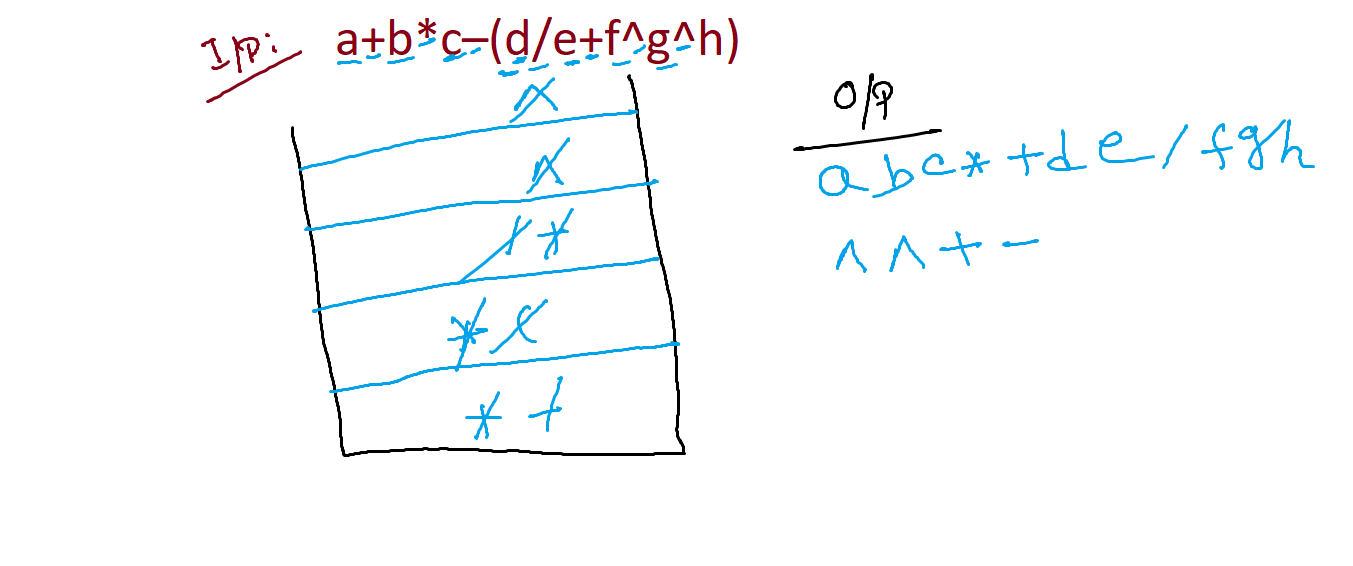 I/P: a+b*c–(d/e+f^g^h)
O/P
abc*+de/fgh
^^+-
^
^
/ +
* (
+